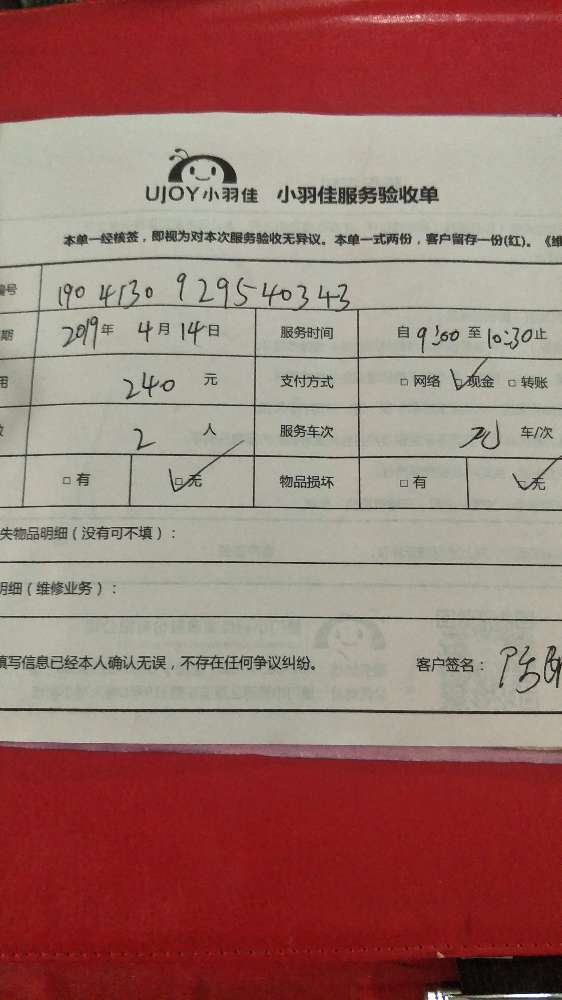 UJOY小羽佳 小羽佳服务验收单
本单一经核签，即视为对本次服务验收无异议。本单一式两份，客户留存一份(红)。《维
编号 190 4130 929540343
期 2019年 4月 14日 服务时间 自 9:00 至 10:30 止
用 240 元 支付方式 □ 网络 □ 现金 □ 转账
数 2 人 服务车次 车/次
□ 有 □ 无 物品损坏 □ 有 □ 无
失物品明细（没有可不填）：
明细（维修业务）：
填写信息已经本人确认无误，不存在任何争议纠纷。 客户签名：